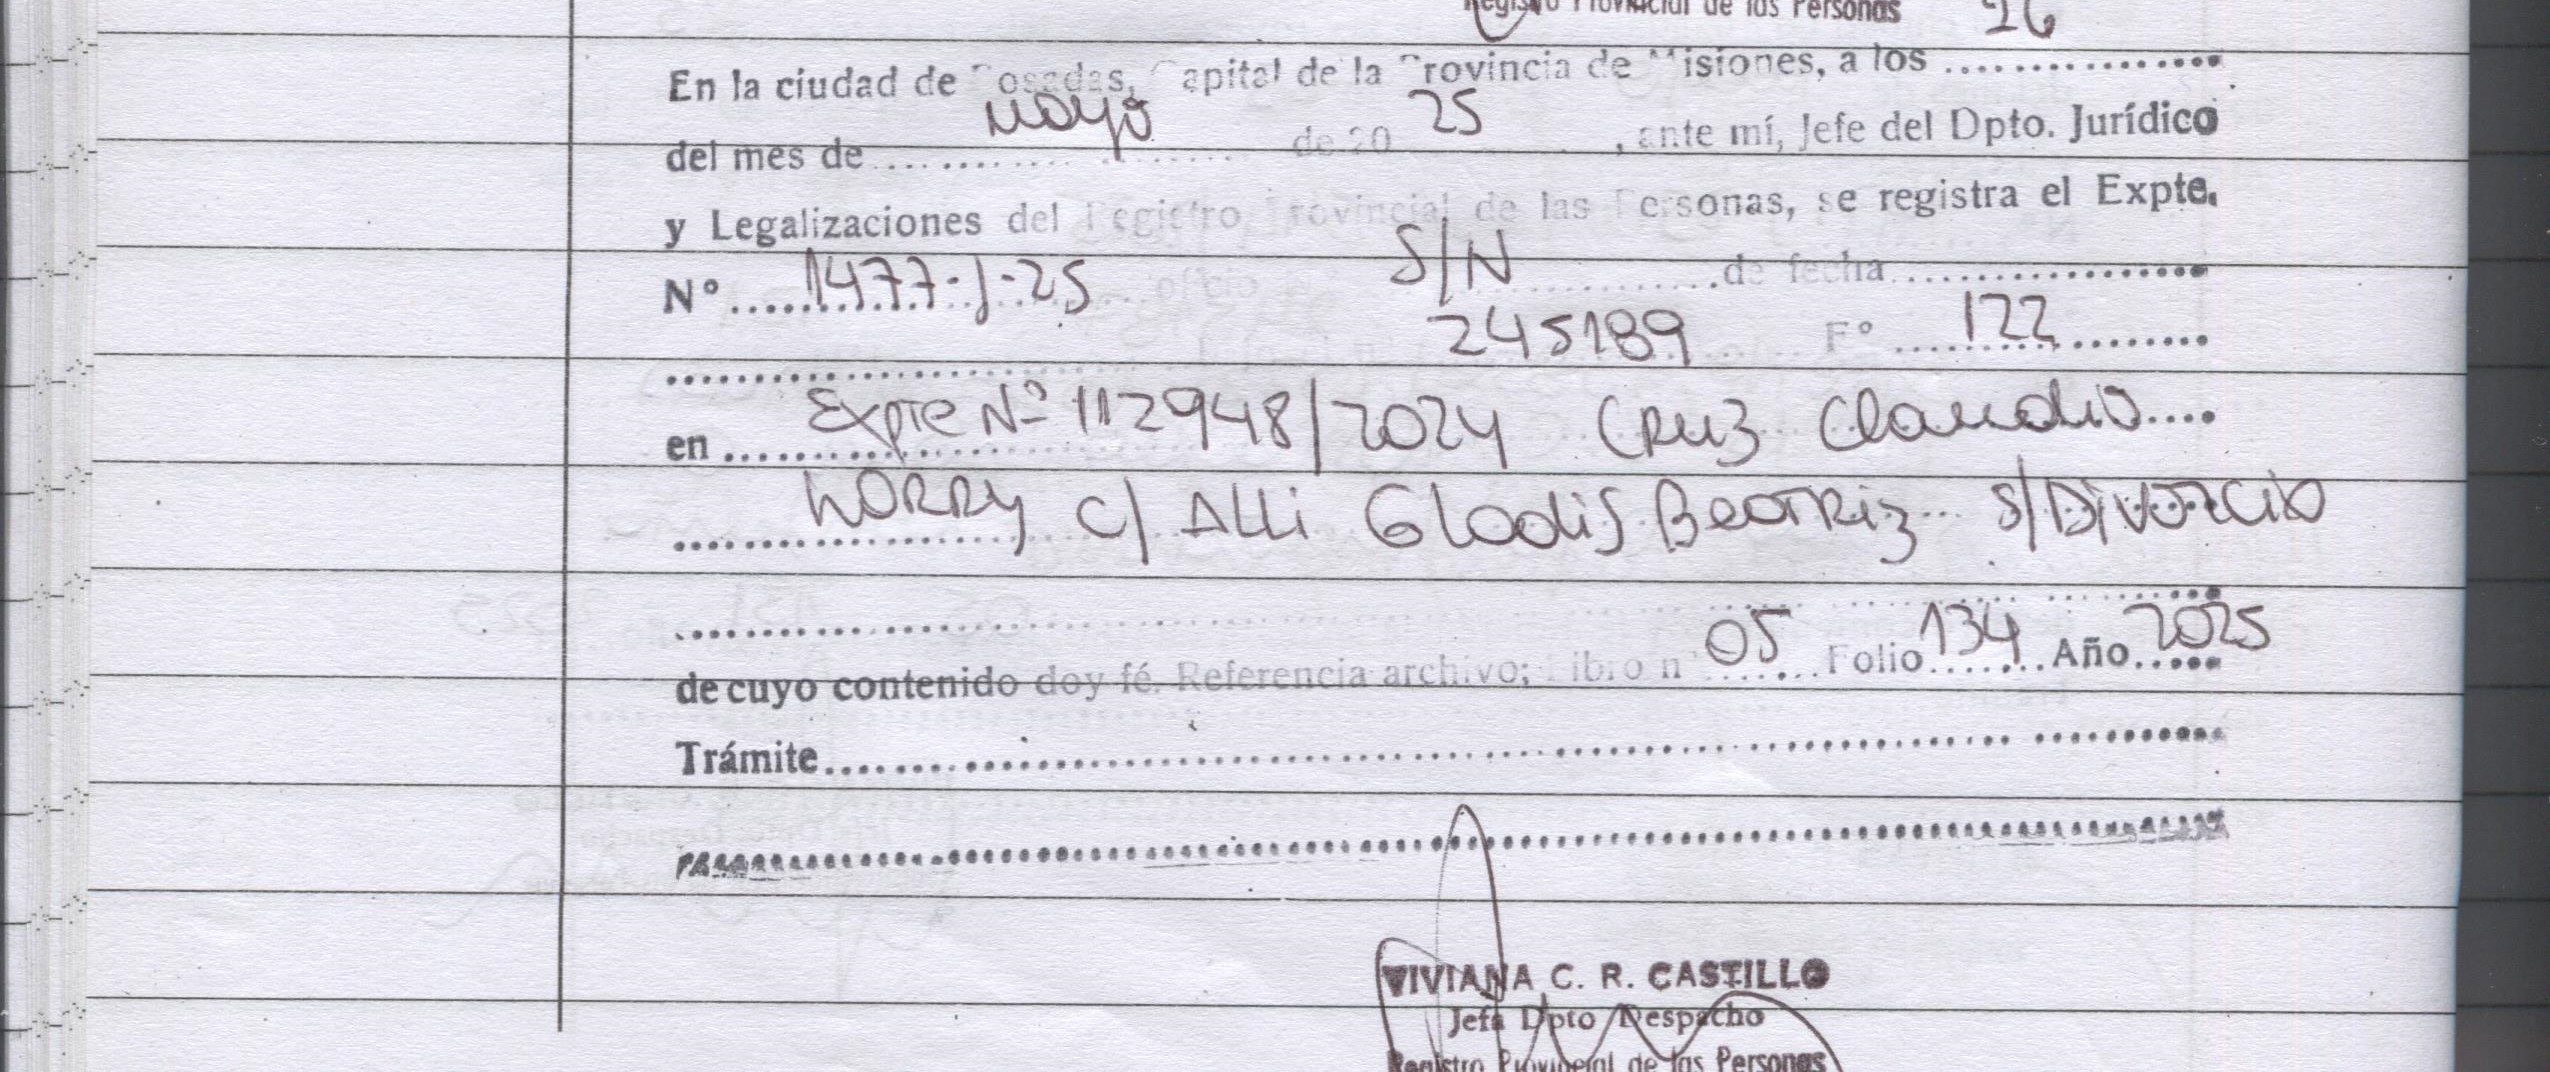 Registro Provincial de las Personas
26
En la ciudad de Posadas, Capital de la Provincia de Misiones, a los ................
del mes de ...... mayo ...... de 20 25 , ante mí, Jefe del Dpto. Jurídico
y Legalizaciones del Registro Provincial de las Personas, se registra el Expte.
Nº ...... 1477-J-25 ...... oficio S/N ...... de fecha ................
................ 245189 ...... Fº ...... 122 ......
en ...... Expte Nº 112948/2024 Cruz Claudio ....
...... c/ Alli Gladis Beatriz s/Divorcio
................
de cuyo contenido doy fé. Referencia archivo; Libro nº 05 Folio 134 Año 2025
Trámite ................
VIVIANA C. R. CASTILLO
Jefa Dpto Despacho
Registro Provincial de las Personas